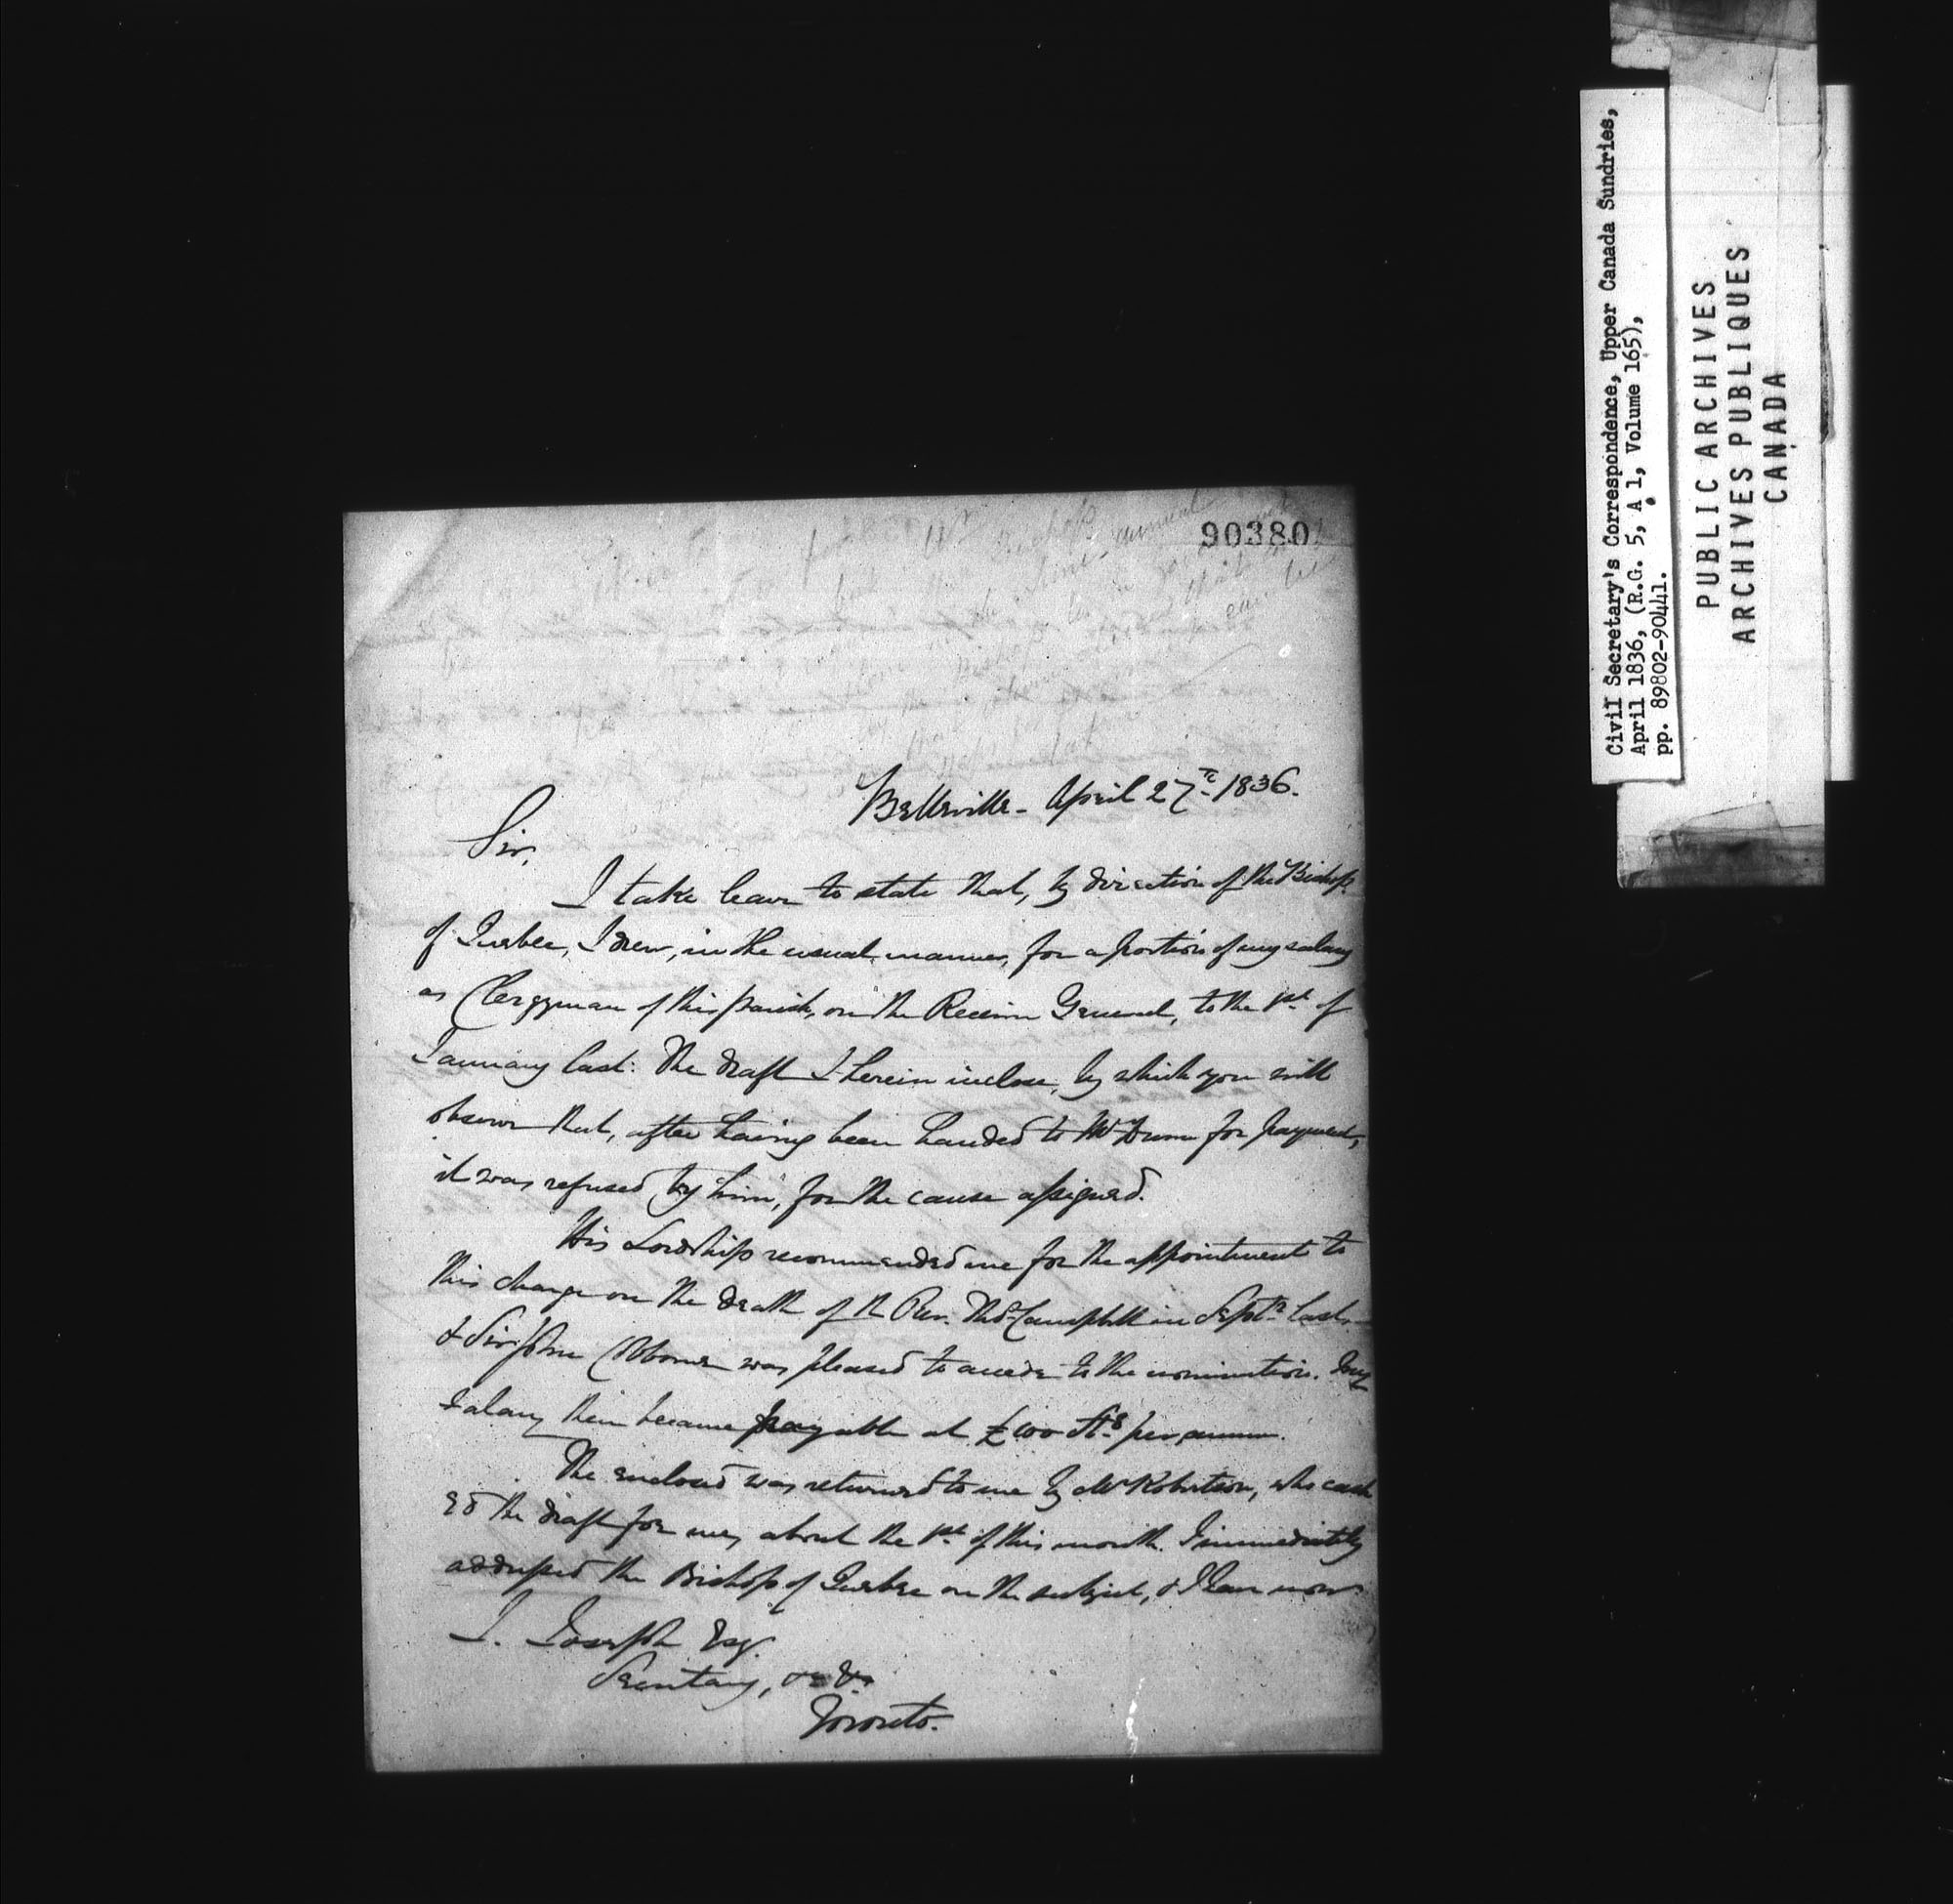 90380
Belleville - April 27th 1836.
Sir,
I take leave to state that, by direction of the Bishop
of Quebec, I drew, in the usual manner, for a portion of my salary
as Clergyman of this parish, on the Receiver General, to the 1st of
January last. The draft I herein inclose, by which you will
observe that, after having been handed to Mr Dunn for payment,
it was refused by him, for the cause assigned.
His Lordship recommended me for the appointment to
this charge on the death of the Rev. Thos Campbell in Septr last,
& Sir John Colborne was pleased to accede to the nomination. My
salary then became payable at £100 Stg per annum.
The enclosed was returned to me by Mr Robertson, who cash
ed the draft for me, about the 1st of this month. I immediately
addressed the Bishop of Quebec on the subject, & I have now
J. Joseph Esq.
Secretary, &c &c
Toronto.
Civil Secretary's Correspondence, Upper Canada Sundries,
April 1836, (R.G. 5, A 1, Volume 165),
pp. 89802-90441.
PUBLIC ARCHIVES
ARCHIVES PUBLIQUES
CANADA